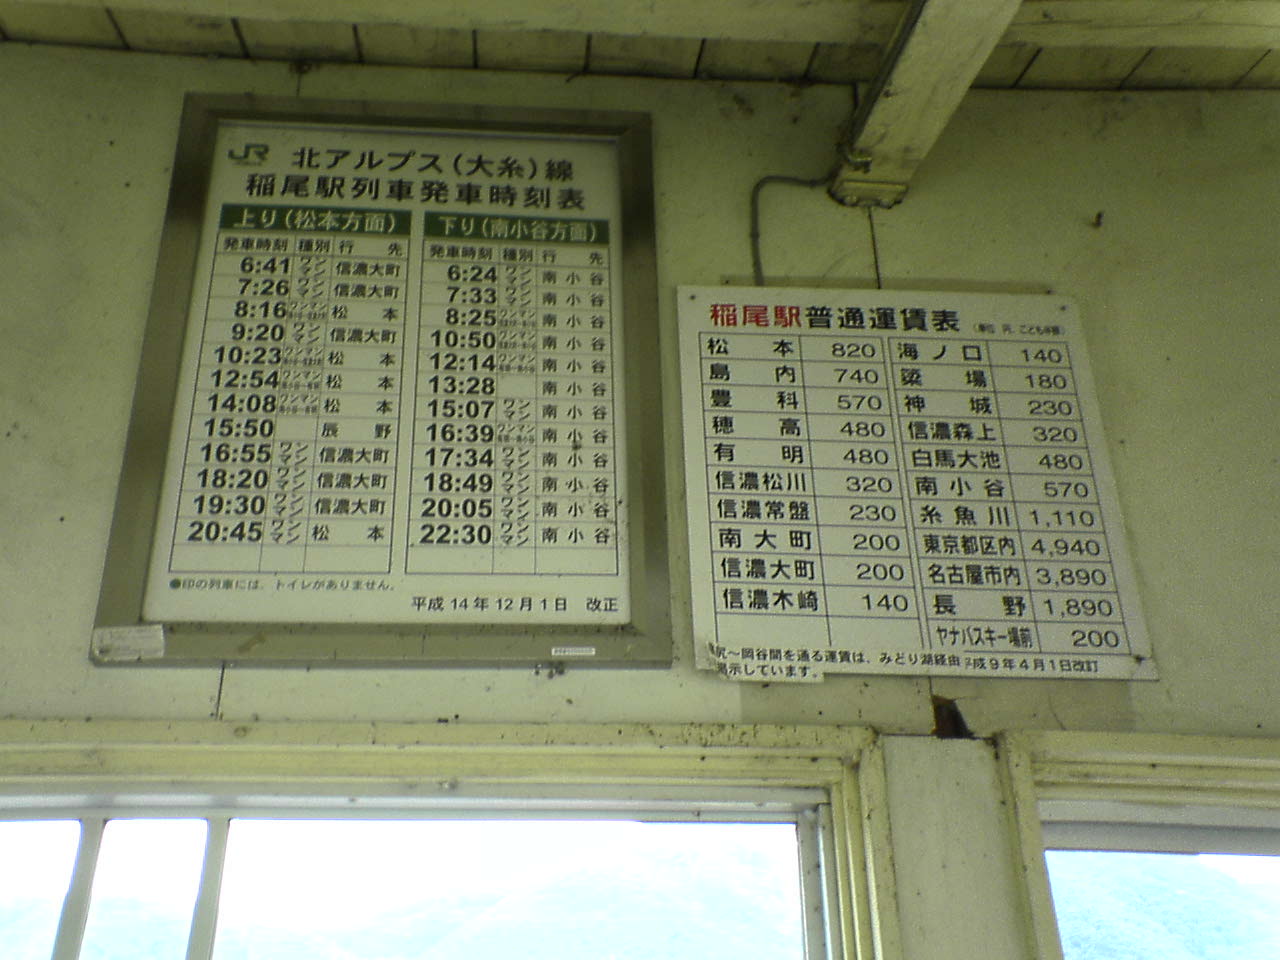 JR 北アルプス(大糸)線
稲尾駅列車発車時刻表
上り(松本方面)
発車時刻 種別 行先
6:41 ワンマン 信濃大町
7:26 ワンマン 信濃大町
8:16 ワンマン 松本
9:20 ワンマン 信濃大町
10:23 ワンマン 松本
12:54 ワンマン 松本
14:08 ワンマン 松本
15:50 辰野
16:55 ワンマン 信濃大町
18:20 ワンマン 信濃大町
19:30 ワンマン 信濃大町
20:45 ワンマン 松本
下り(南小谷方面)
発車時刻 種別 行先
6:24 ワンマン 南小谷
7:33 ワンマン 南小谷
8:25 ワンマン 南小谷
10:50 ワンマン 南小谷
12:14 ワンマン 南小谷
13:28 南小谷
15:07 ワンマン 南小谷
16:39 ワンマン 南小谷
17:34 ワンマン 南小谷
18:49 ワンマン 南小谷
20:05 ワンマン 南小谷
22:30 ワンマン 南小谷
●印の列車には、トイレがありません。
平成14年12月1日 改正
稲尾駅普通運賃表 (単位 円、こども半額)
松本 820 海ノ口 140
島内 740 簗場 180
豊科 570 神城 230
穂高 480 信濃森上 320
有明 480 白馬大池 480
信濃松川 320 南小谷 570
信濃常盤 230 糸魚川 1,110
南大町 200 東京都区内 4,940
信濃大町 200 名古屋市内 3,890
信濃木崎 140 長野 1,890
ヤナバスキー場前 200
尻〜岡谷間を通る運賃は、みどり湖経由 成9年4月1日改訂
掲示しています。